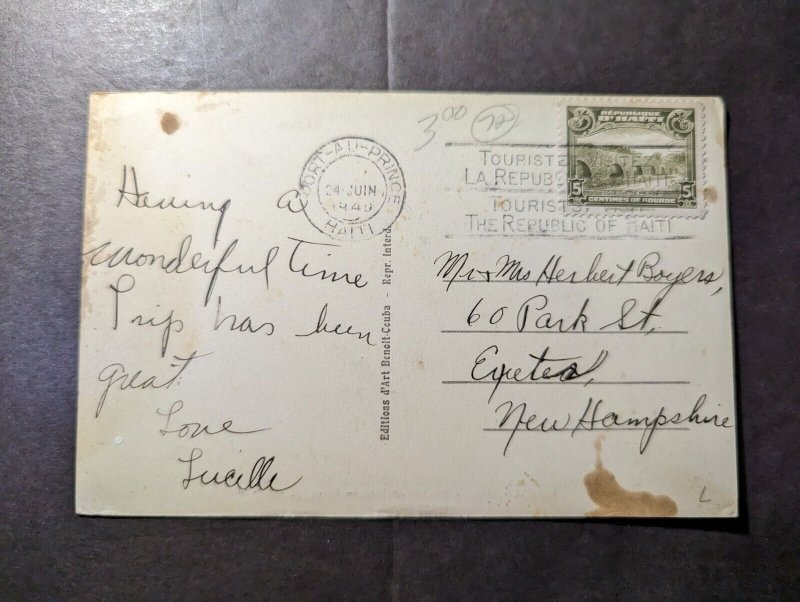 3.00
RÉPUBLIQUE
D'HAÏTI
5 5
CENTIMES DE GOURDE
PORT-AU-PRINCE
24-JUIN
HAITI
TOURISTES VISITEZ
LA REPUBLIQUE
TOURISTS!
THE REPUBLIC OF HAITI
Having a
wonderful time
Trip has been
great.
Love
Lucille
Editions d'Art Benoit-Ceuba - Repr. interd.
Mr & Mrs Herbert Boyers,
60 Park St,
Exeter,
New Hampshire
L